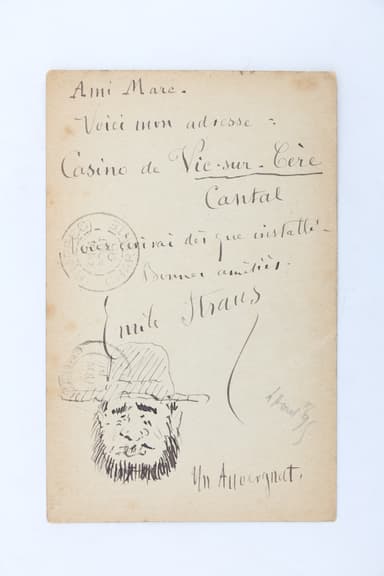 Ami Marc.
Voici mon adresse :
Casino de Vic-sur-Cère
Cantal
Vous écrirai dès que installé.
Bonnes amitiés.
Emile Straus
Un Auvergnat.